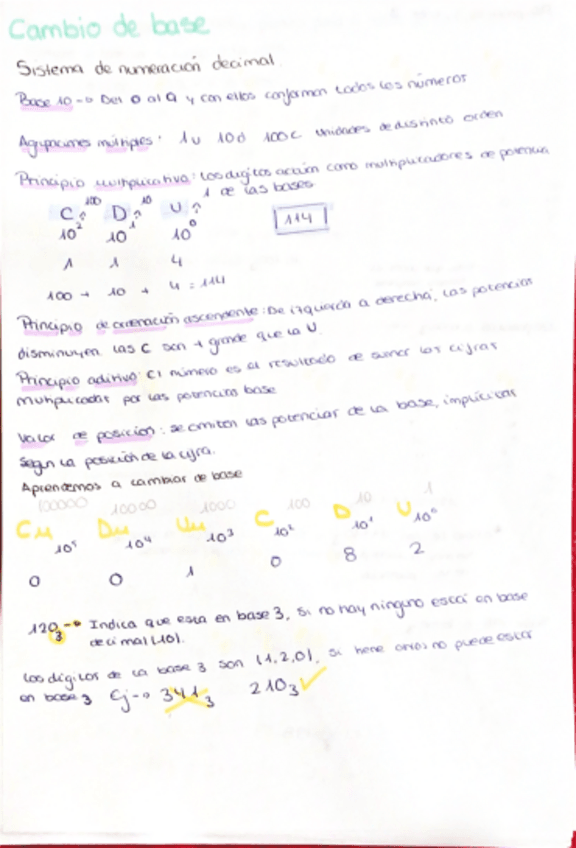 Cambio de base
Sistema de numeración decimal
Base 10 → Del 0 al 9 y con ellos conforman todos los números
Agrupaciones múltiples: 1u 10d 100c unidades de distinto orden
Principio multiplicativo: Los dígitos actúan como multiplicadores de potencia
de las bases.
100 10 1
C D U
10² 10¹ 10⁰
114
1 1 4
100 + 10 + 4 = 114
Principio de ordenación ascendente: De izquierda a derecha, las potencias
disminuyen las C son + grande que la U.
Principio aditivo: El número es al resultado de sumar las cifras
multiplicadas por las potencias base
Valor de posición: se omiten las potencias de la base, implícitas
según la posición de la cifra.
Aprendemos a cambiar de base
100000 10000 1000 100 10 1
CM DM UM C D U
10⁵ 10⁴ 10³ 10² 10¹ 10⁰
0 0 1 0 8 2
120₃ → Indica que esta en base 3, si no hay ninguno está en base
decimal (10).
Los dígitos de la base 3 son (1,2,0), si tiene otros no puede estar
en base 3 Ej → 341₃ 210₃ ✓